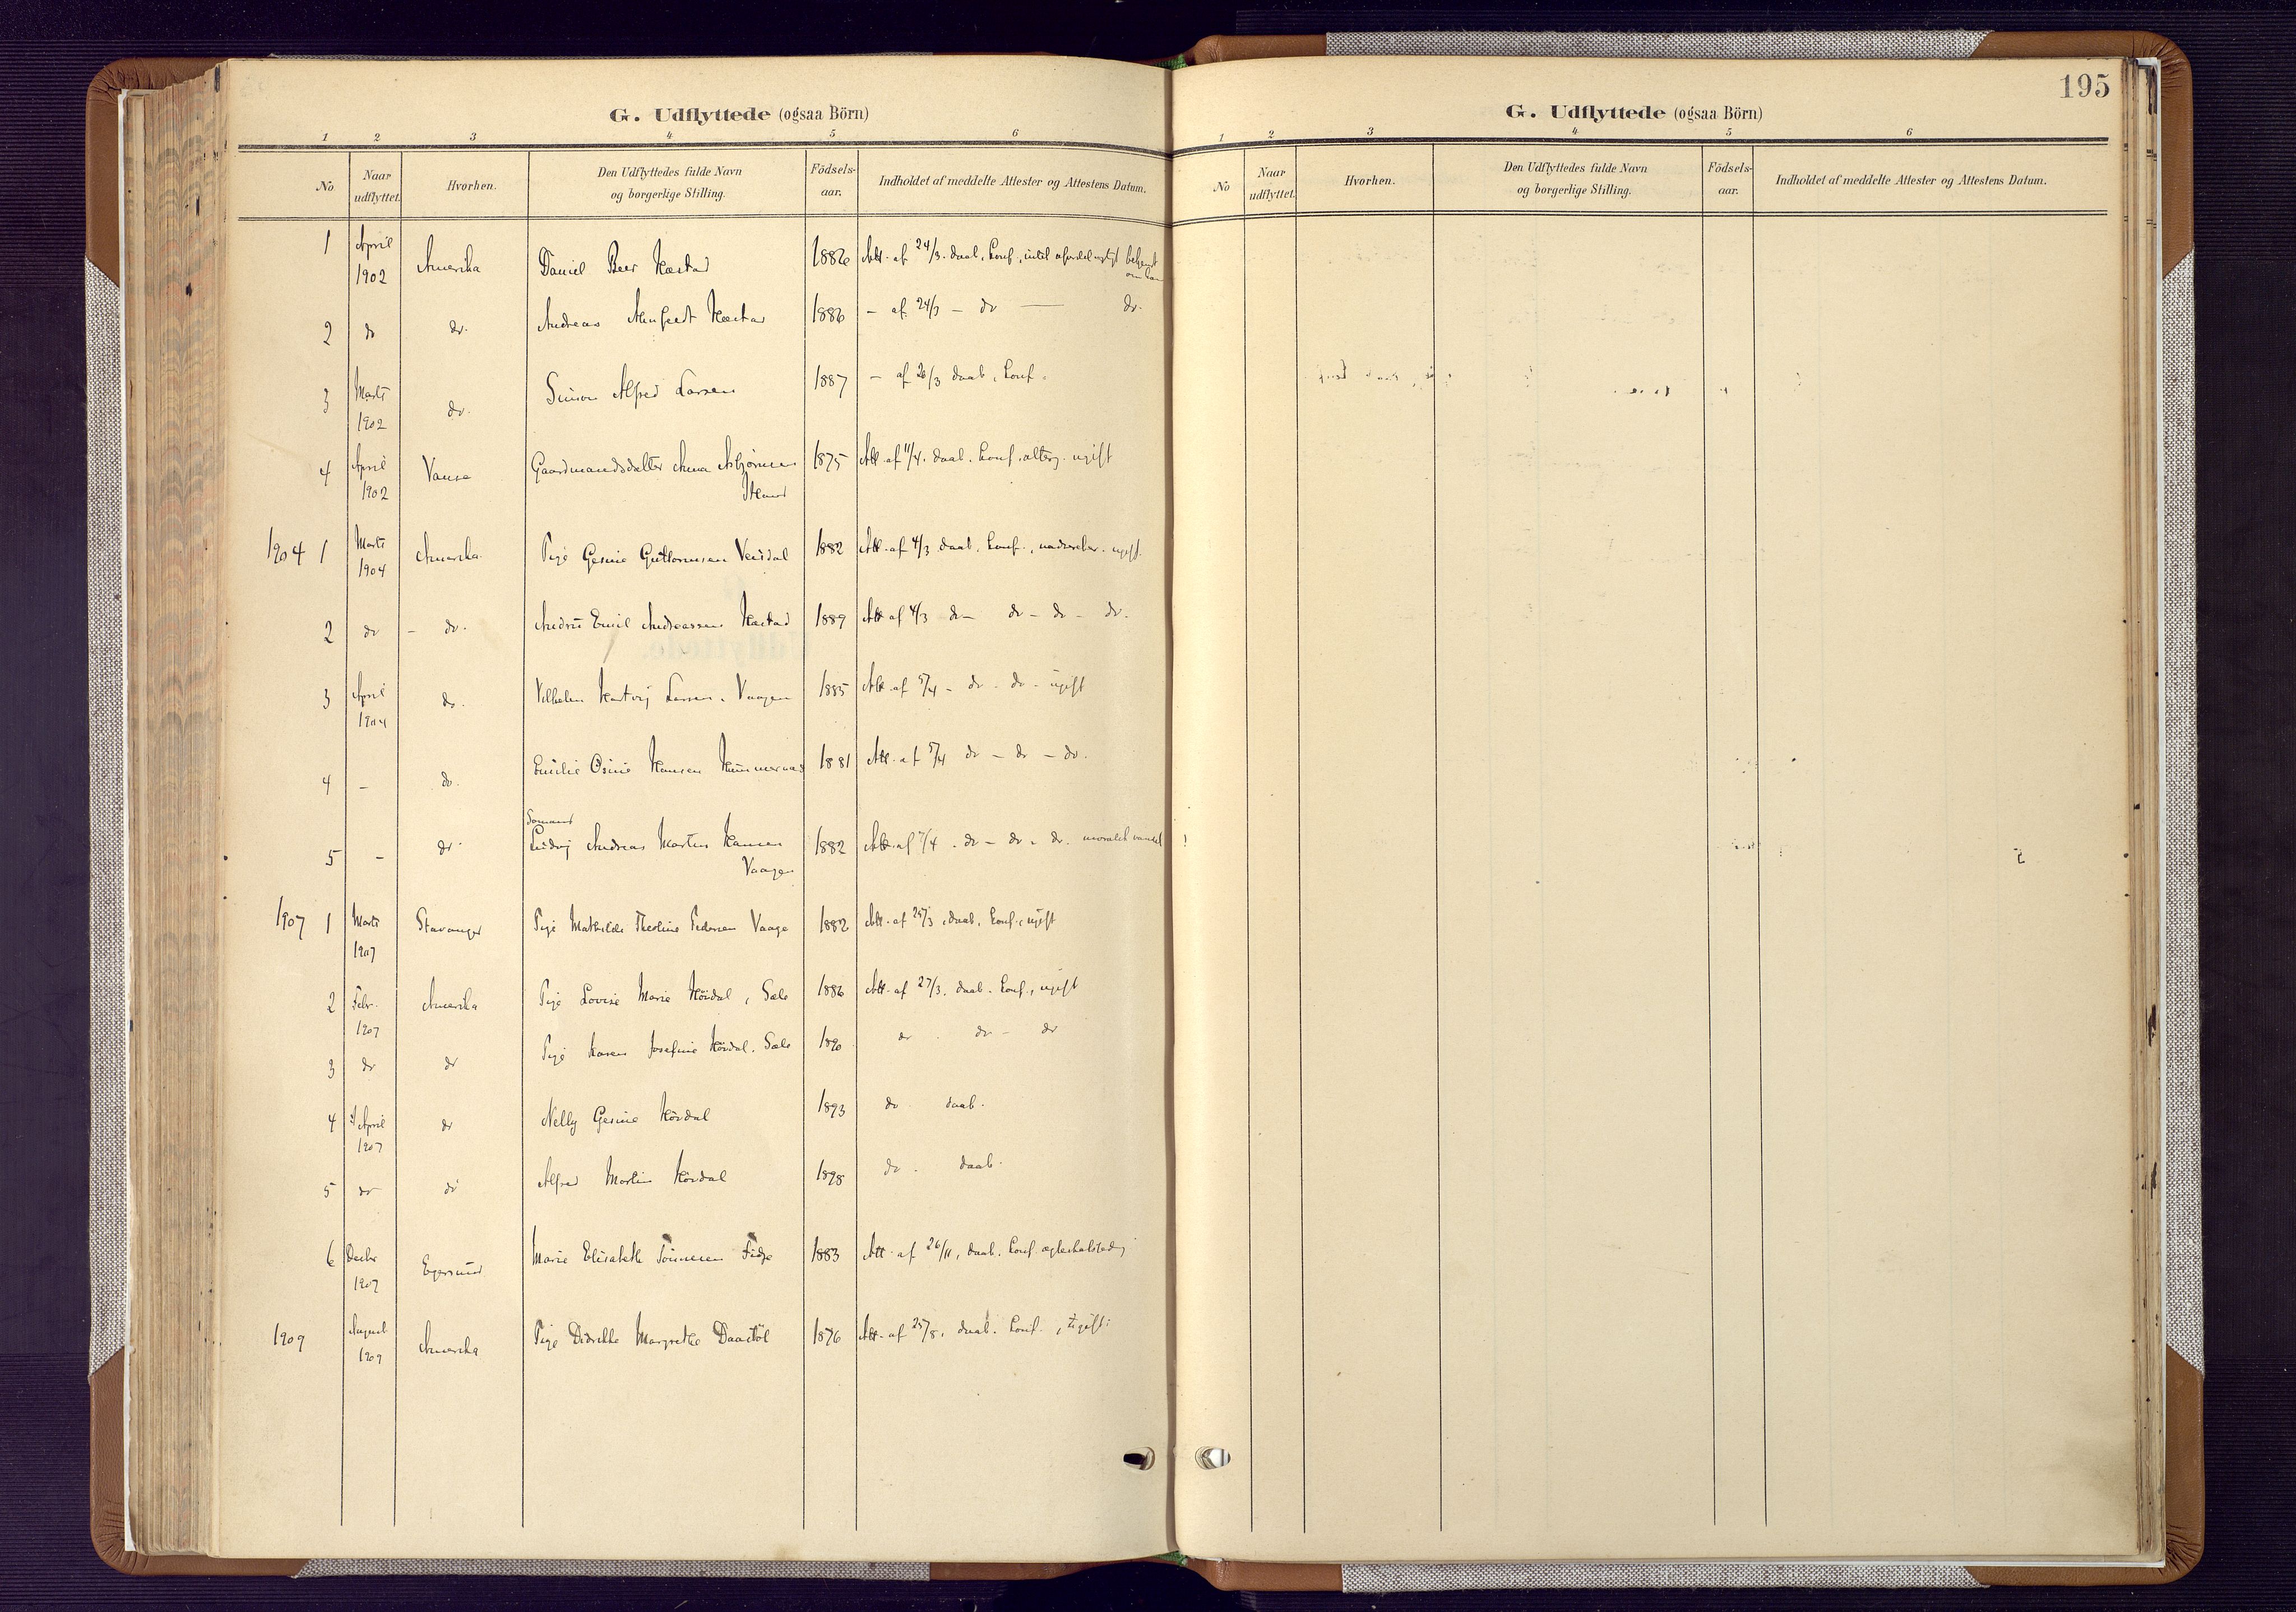 G. Udflyttede (ogsaa Börn)
1 2 3 4 5 6
No Naar udflyttet. Hvorhen. Den Udflyttedes fulde Navn og borgerlige Stilling. Födsels-aar. Indholdet af meddelte Attester og Attestens Datum.
1 April 1902 Amerika Daniel Beer Hæstad 1882 Att. af 24/3. daab, konf., intet ufordelagtigt bekjendt
om ham
2 do do. Andreas Hæstad 1886 - af 24/3 - do — do.
3 Marts 1902 do. Simon Alfred Larsen 1887 - af 26/3 daab, konf.
4 April 1902 Vanse Gaardmandsdatter Anna Asbjørnsen 1875 Att. af 11/4. daab. konf. alterg. ugift
1904 1 Marts 1904 Amerika Pige Gesine Guttormsen Veisdal 1882 Att. af 4/3 daab. konf., ugift.
2 do - do. Emil Andreassen Hæstad 1889 Att af 4/3 do - do - do - do.
3 April 1904 do. Vilhelm Hartvig Larsen. Vaagen 1885 Att. af 5/4 - do - do - ugift
4 - do. Emilie Osine Hansen 1881 Att. af 5/4 do - do - do.
5 - do Sømand
Ludvig Andreas Martin Hansen 1882 Att. af 7/4 - do - do - do. moralsk vandel
Vaagen
1907 1 Marts 1907 Stavanger Pige Mathilde Theoline Pedersen Vaage 1882 Att. af 25/3, daab, konf., ugift
2 Febr. 1907 Amerika Pige Lovise Marie Hövdal, Sæle 1886 Att. af 27/3. daab. konf., ugift
3 do do Pige Karen Josefine Hövdal. Sæle 1890 do. do - do
4 April 1907 do Nelly Gesine Hövdal 1893 do. daab.
5 do do Alfred Martin Hövdal 1898 do. daab.
6 Decbr 1907 Egersund Marie Elisabeth Tönnesen Fidje 1883 Att. af 26/11, daab. konf.
1909 August 1909 Amerika Pige Didrikke Margrethe Daastöl 1876 Att. af 25/8, daab. konf., ugift.
195
G. Udflyttede (ogsaa Börn)
1 2 3 4 5 6
No Naar udflyttet. Hvorhen. Den Udflyttedes fulde Navn og borgerlige Stilling. Födsels-aar. Indholdet af meddelte Attester og Attestens Datum.